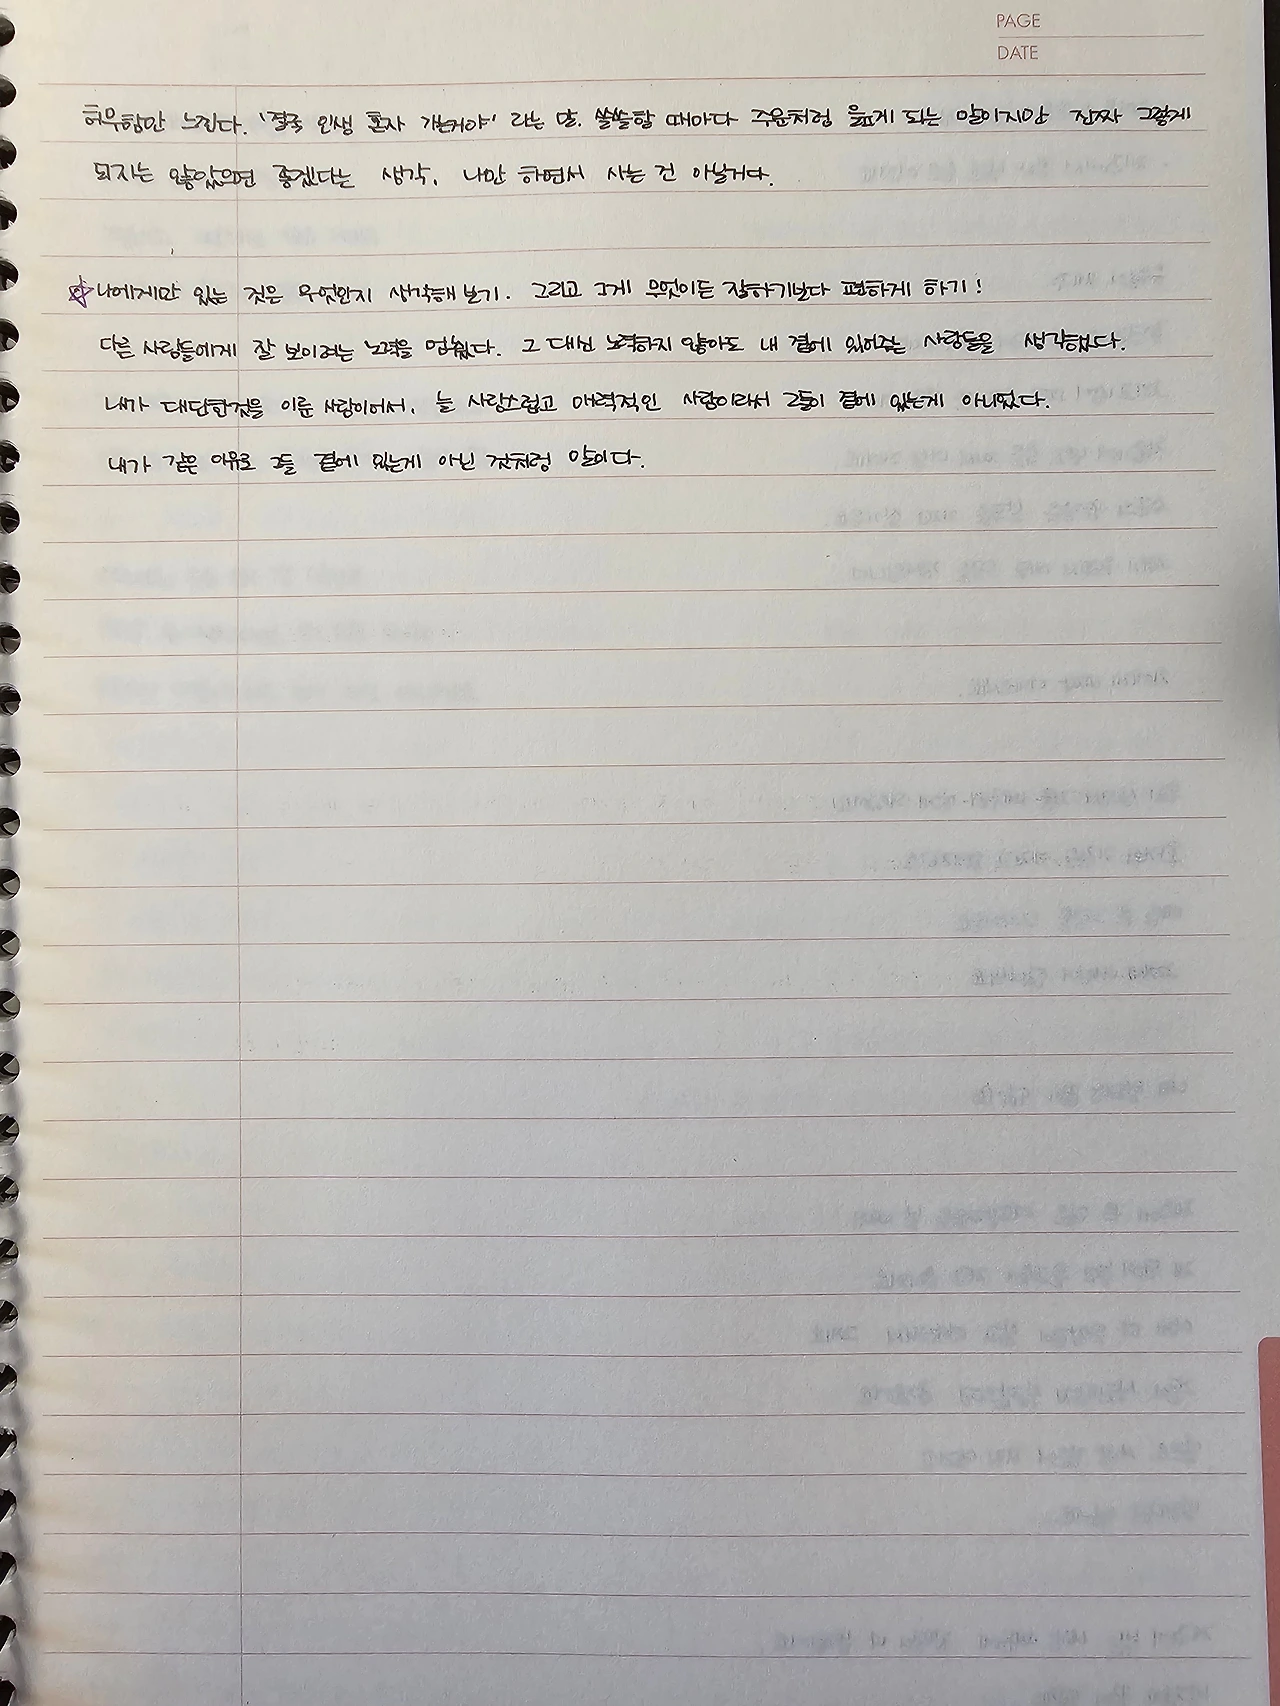 PAGE
DATE
허무함만 느낀다. '결국 인생 혼자 가는거야' 라는 말. 쓸쓸할 때마다 주문처럼 읊게 되는 말이지만 진짜 그렇게
되지는 않았으면 좋겠다는 생각, 나만 하면서 사는 건 아닐거다.
☆ 나에게만 있는 것은 무엇인지 생각해 보기. 그리고 그게 무엇이든 잘하기보다 편하게 하기!
다른 사람들에게 잘 보이려는 노력을 멈췄다. 그 대신 노력하지 않아도 내 곁에 있어주는 사람들을 생각했다.
내가 대단한것을 이룬 사람이어서, 늘 사랑스럽고 매력적인 사람이라서 그들이 곁에 있는게 아니었다.
내가 같은 이유로 그들 곁에 있는게 아닌 것처럼 말이다.